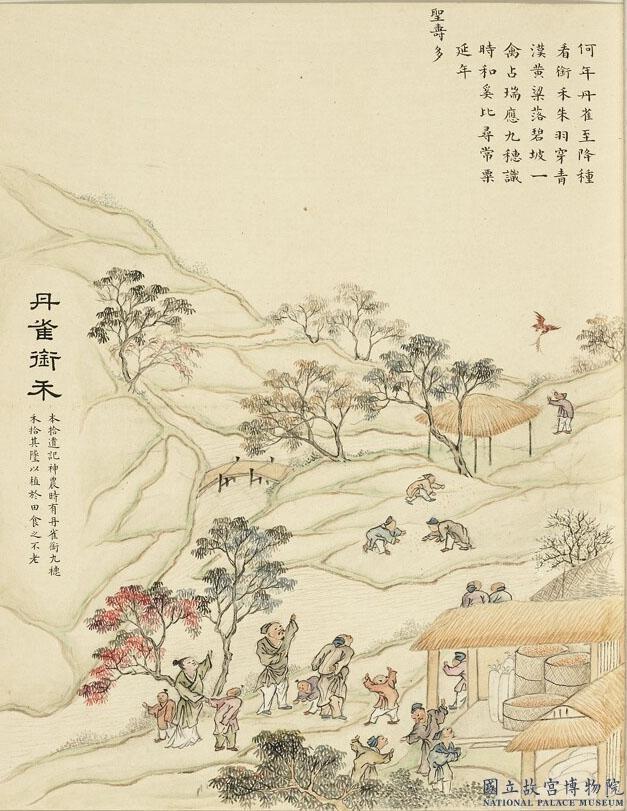 何年丹雀至降種
看銜禾朱羽穿青
漢黃粱落碧坡一
禽占瑞應九穗識
時和奚比尋常粟
延年
聖壽多
丹雀銜禾
本拾遺記神農時有丹雀銜九穗
禾拾其墜以植於田食之不老
國立故宮博物院
NATIONAL PALACE MUSEUM